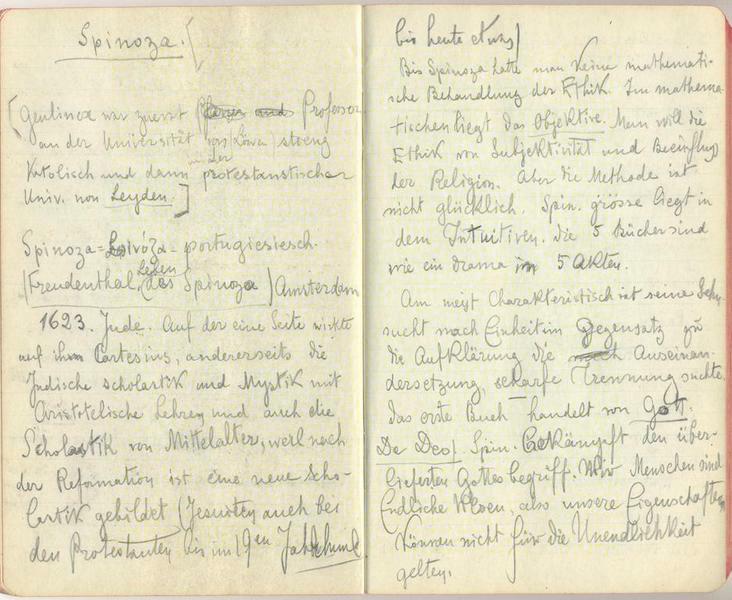 Spinoza.
[Geulincx war zuerst Professor
an der Universität (Löwen) streng
Katolisch und dann in der protestanstischer
Univ. von Leyden.]
Spinoza = portugiesisch.
(Freudenthal, Leben des Spinoza) Amsterdam
1623. Jude. Auf der eine Seite wirkte
auf ihm Cartesius, andererseits die
Jüdische scholastik und Mystik mit
Aristotelische Lehren und auch die
Scholastik von Mittelalter, weil nach
der Reformation ist eine neue Scho-
lastik gebildet (Jesuiten auch bei
den Protestanten bis im 19en Jahrhund
bis heute etwas)
Bis Spinoza hatte man keine mathemati-
sche Behandlung der Ethik. Im mathema-
tischen liegt das Objektive. Man will die
Ethik von Subjektivität und Beeinfluß
der Religion. Aber die Methode ist
nicht glücklich. Spin. grösse liegt in
dem Intuitiven. die 5 Bücher sind
wie ein drama in 5 Akten.
Am meist Charakteristisch ist seine Sehn-
sucht nach Einheit im Gegensatz zu
die Aufklärung die Auseinan-
dersetzung, scharfe Trennung suchte.
das erste Buch handelt von Gott.
De Deo. Spin. Bekämpft den über-
lieferten Gottesbegriff. Wir Menschen sind
Endliche Wesen, also unsere Eigenschaften
können nicht für die Unendlichkeit
gelten.